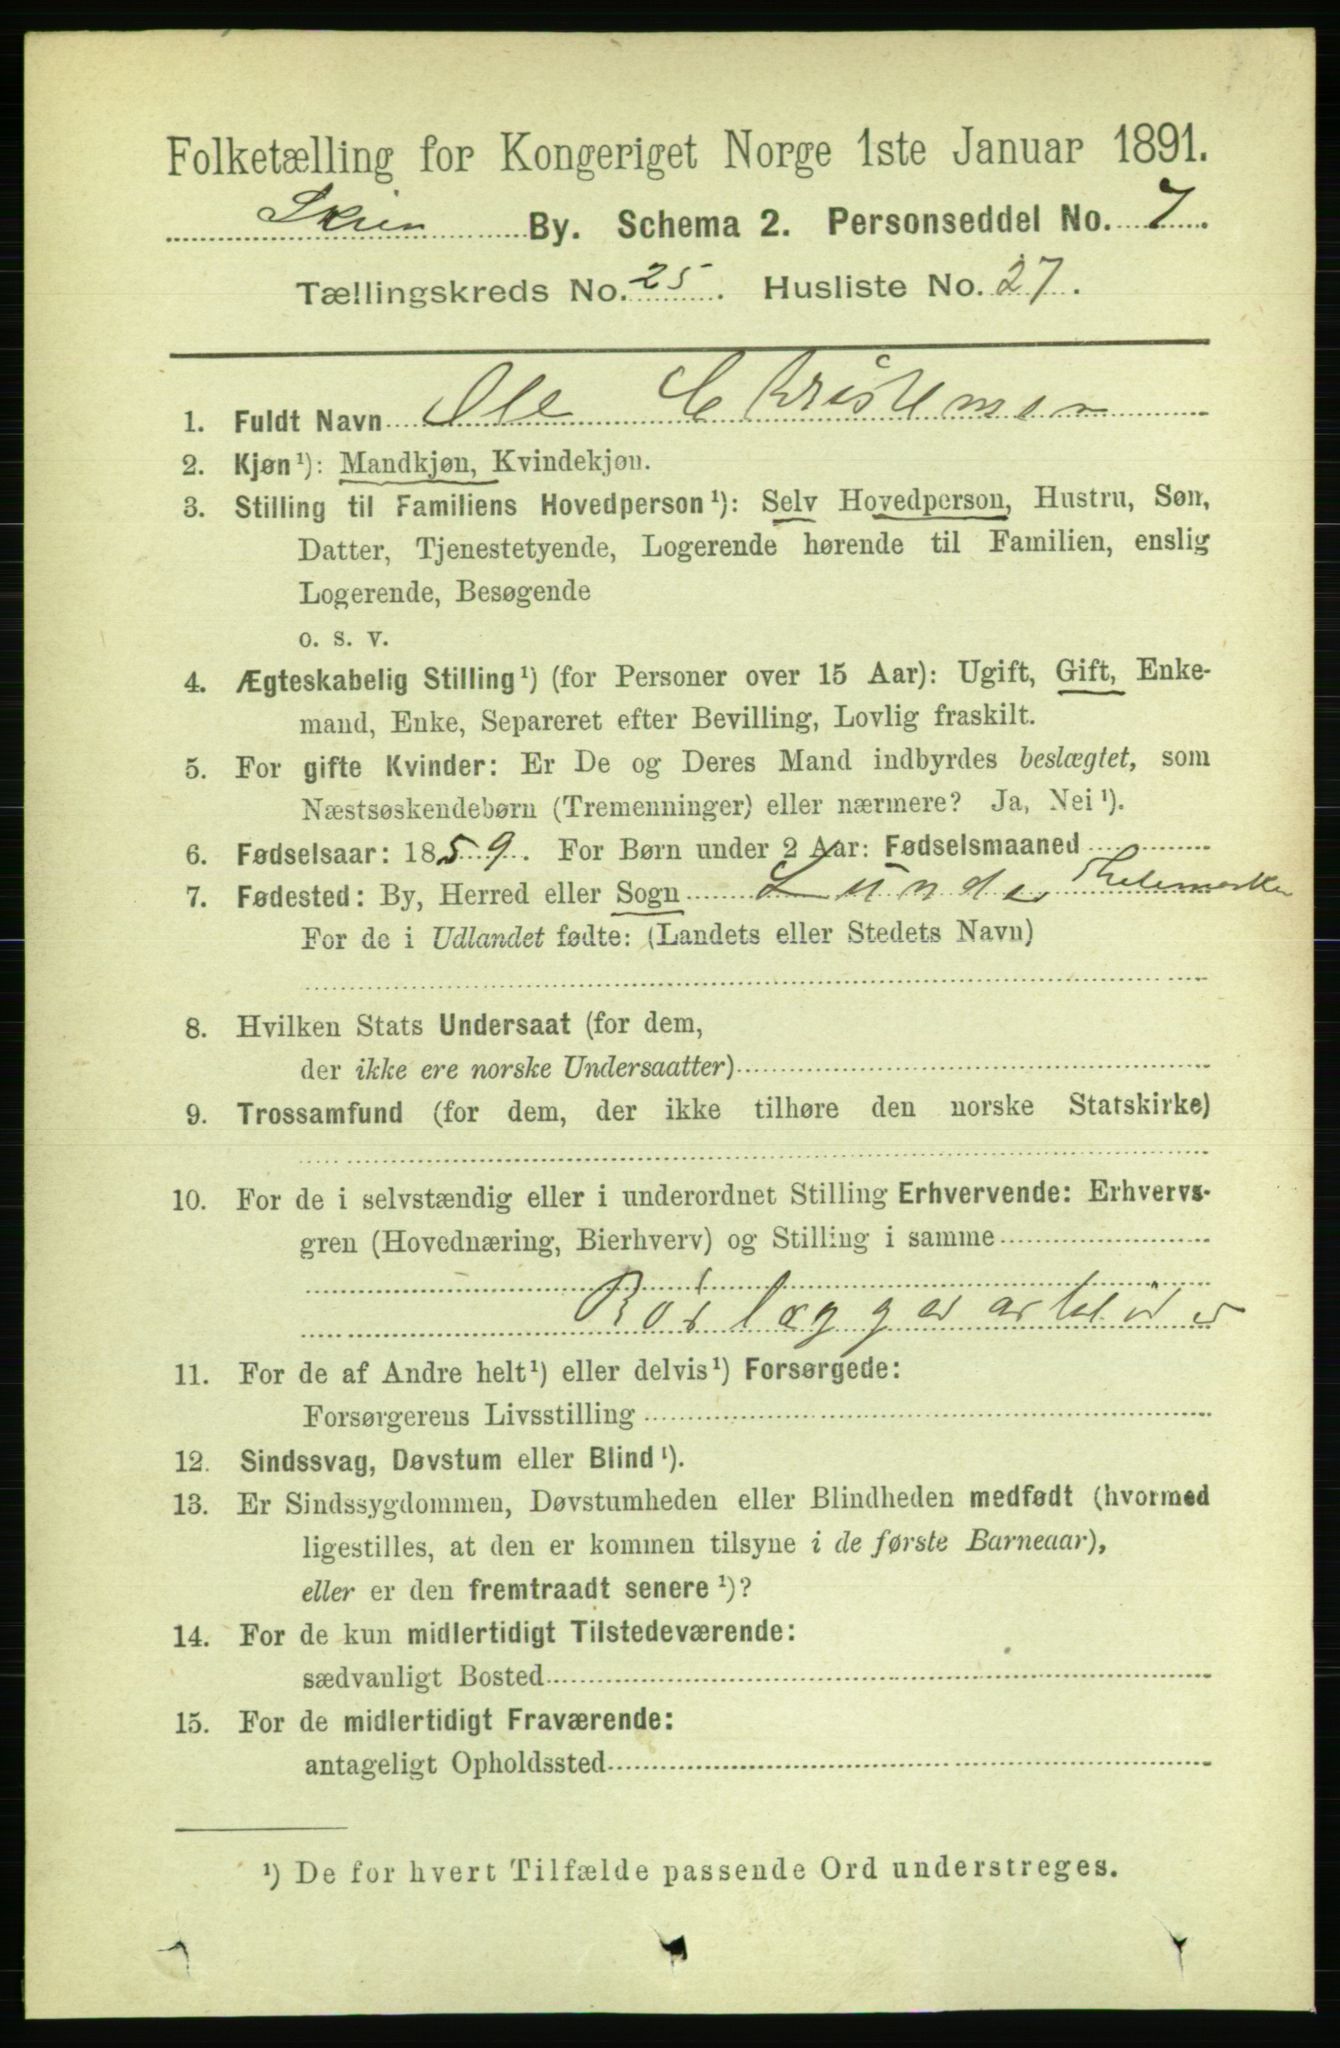 Folketælling for Kongeriget Norge 1ste Januar 1891.
Skien By. Schema 2. Personseddel No. 7.
Tællingskreds No. 25. Husliste No. 27.
1. Fuldt Navn Ole Christensen
2. Kjøn¹): Mandkjøn, Kvindekjøn.
3. Stilling til Familiens Hovedperson¹): Selv Hovedperson, Hustru, Søn,
Datter, Tjenestetyende, Logerende hørende til Familien, enslig
Logerende, Besøgende
o. s. v.
4. Ægteskabelig Stilling¹) (for Personer over 15 Aar): Ugift, Gift, Enke-
mand, Enke, Separeret efter Bevilling, Lovlig fraskilt.
5. For gifte Kvinder: Er De og Deres Mand indbyrdes beslægtet, som
Næstsøskendebørn (Tremenninger) eller nærmere? Ja, Nei¹).
6. Fødselsaar: 1859. For Børn under 2 Aar: Fødselsmaaned
7. Fødested: By, Herred eller Sogn Lunde Thelemarken
For de i Udlandet fødte: (Landets eller Stedets Navn)
8. Hvilken Stats Undersaat (for dem,
der ikke ere norske Undersaatter)
9. Trossamfund (for dem, der ikke tilhøre den norske Statskirke)
10. For de i selvstændig eller i underordnet Stilling Erhvervende: Erhvervs-
gren (Hovednæring, Bierhverv) og Stilling i samme
Rørlæggerarbeider
11. For de af Andre helt¹) eller delvis¹) Forsørgede:
Forsørgerens Livsstilling
12. Sindssvag, Døvstum eller Blind¹).
13. Er Sindssygdommen, Døvstumheden eller Blindheden medfødt (hvormed
ligestilles, at den er kommen tilsyne i de første Barneaar),
eller er den fremtraadt senere¹)?
14. For de kun midlertidigt Tilstedeværende:
sædvanligt Bosted
15. For de midlertidigt Fraværende:
antageligt Opholdssted
¹) De for hvert Tilfælde passende Ord understreges.